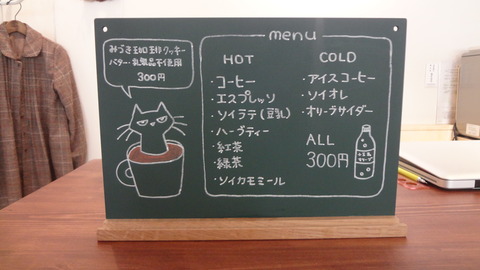 みづき珈琲クッキー
バター・乳製品不使用
300円
menu
HOT
・コーヒー
・エスプレッソ
・ソイラテ(豆乳)
・ハーブティー
・紅茶
・緑茶
・ソイカモミール
COLD
・アイスコーヒー
・ソイオレ
・オリーブサイダー
ALL
300円